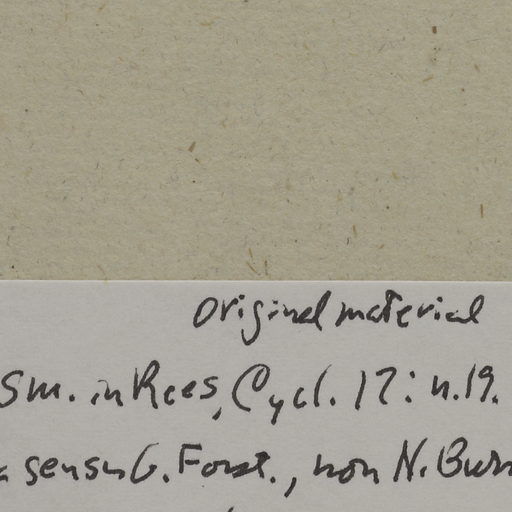 Original material
Sm. in Rees, Cycl. 17: n.19.
sensu G. Forst., non N. Burm